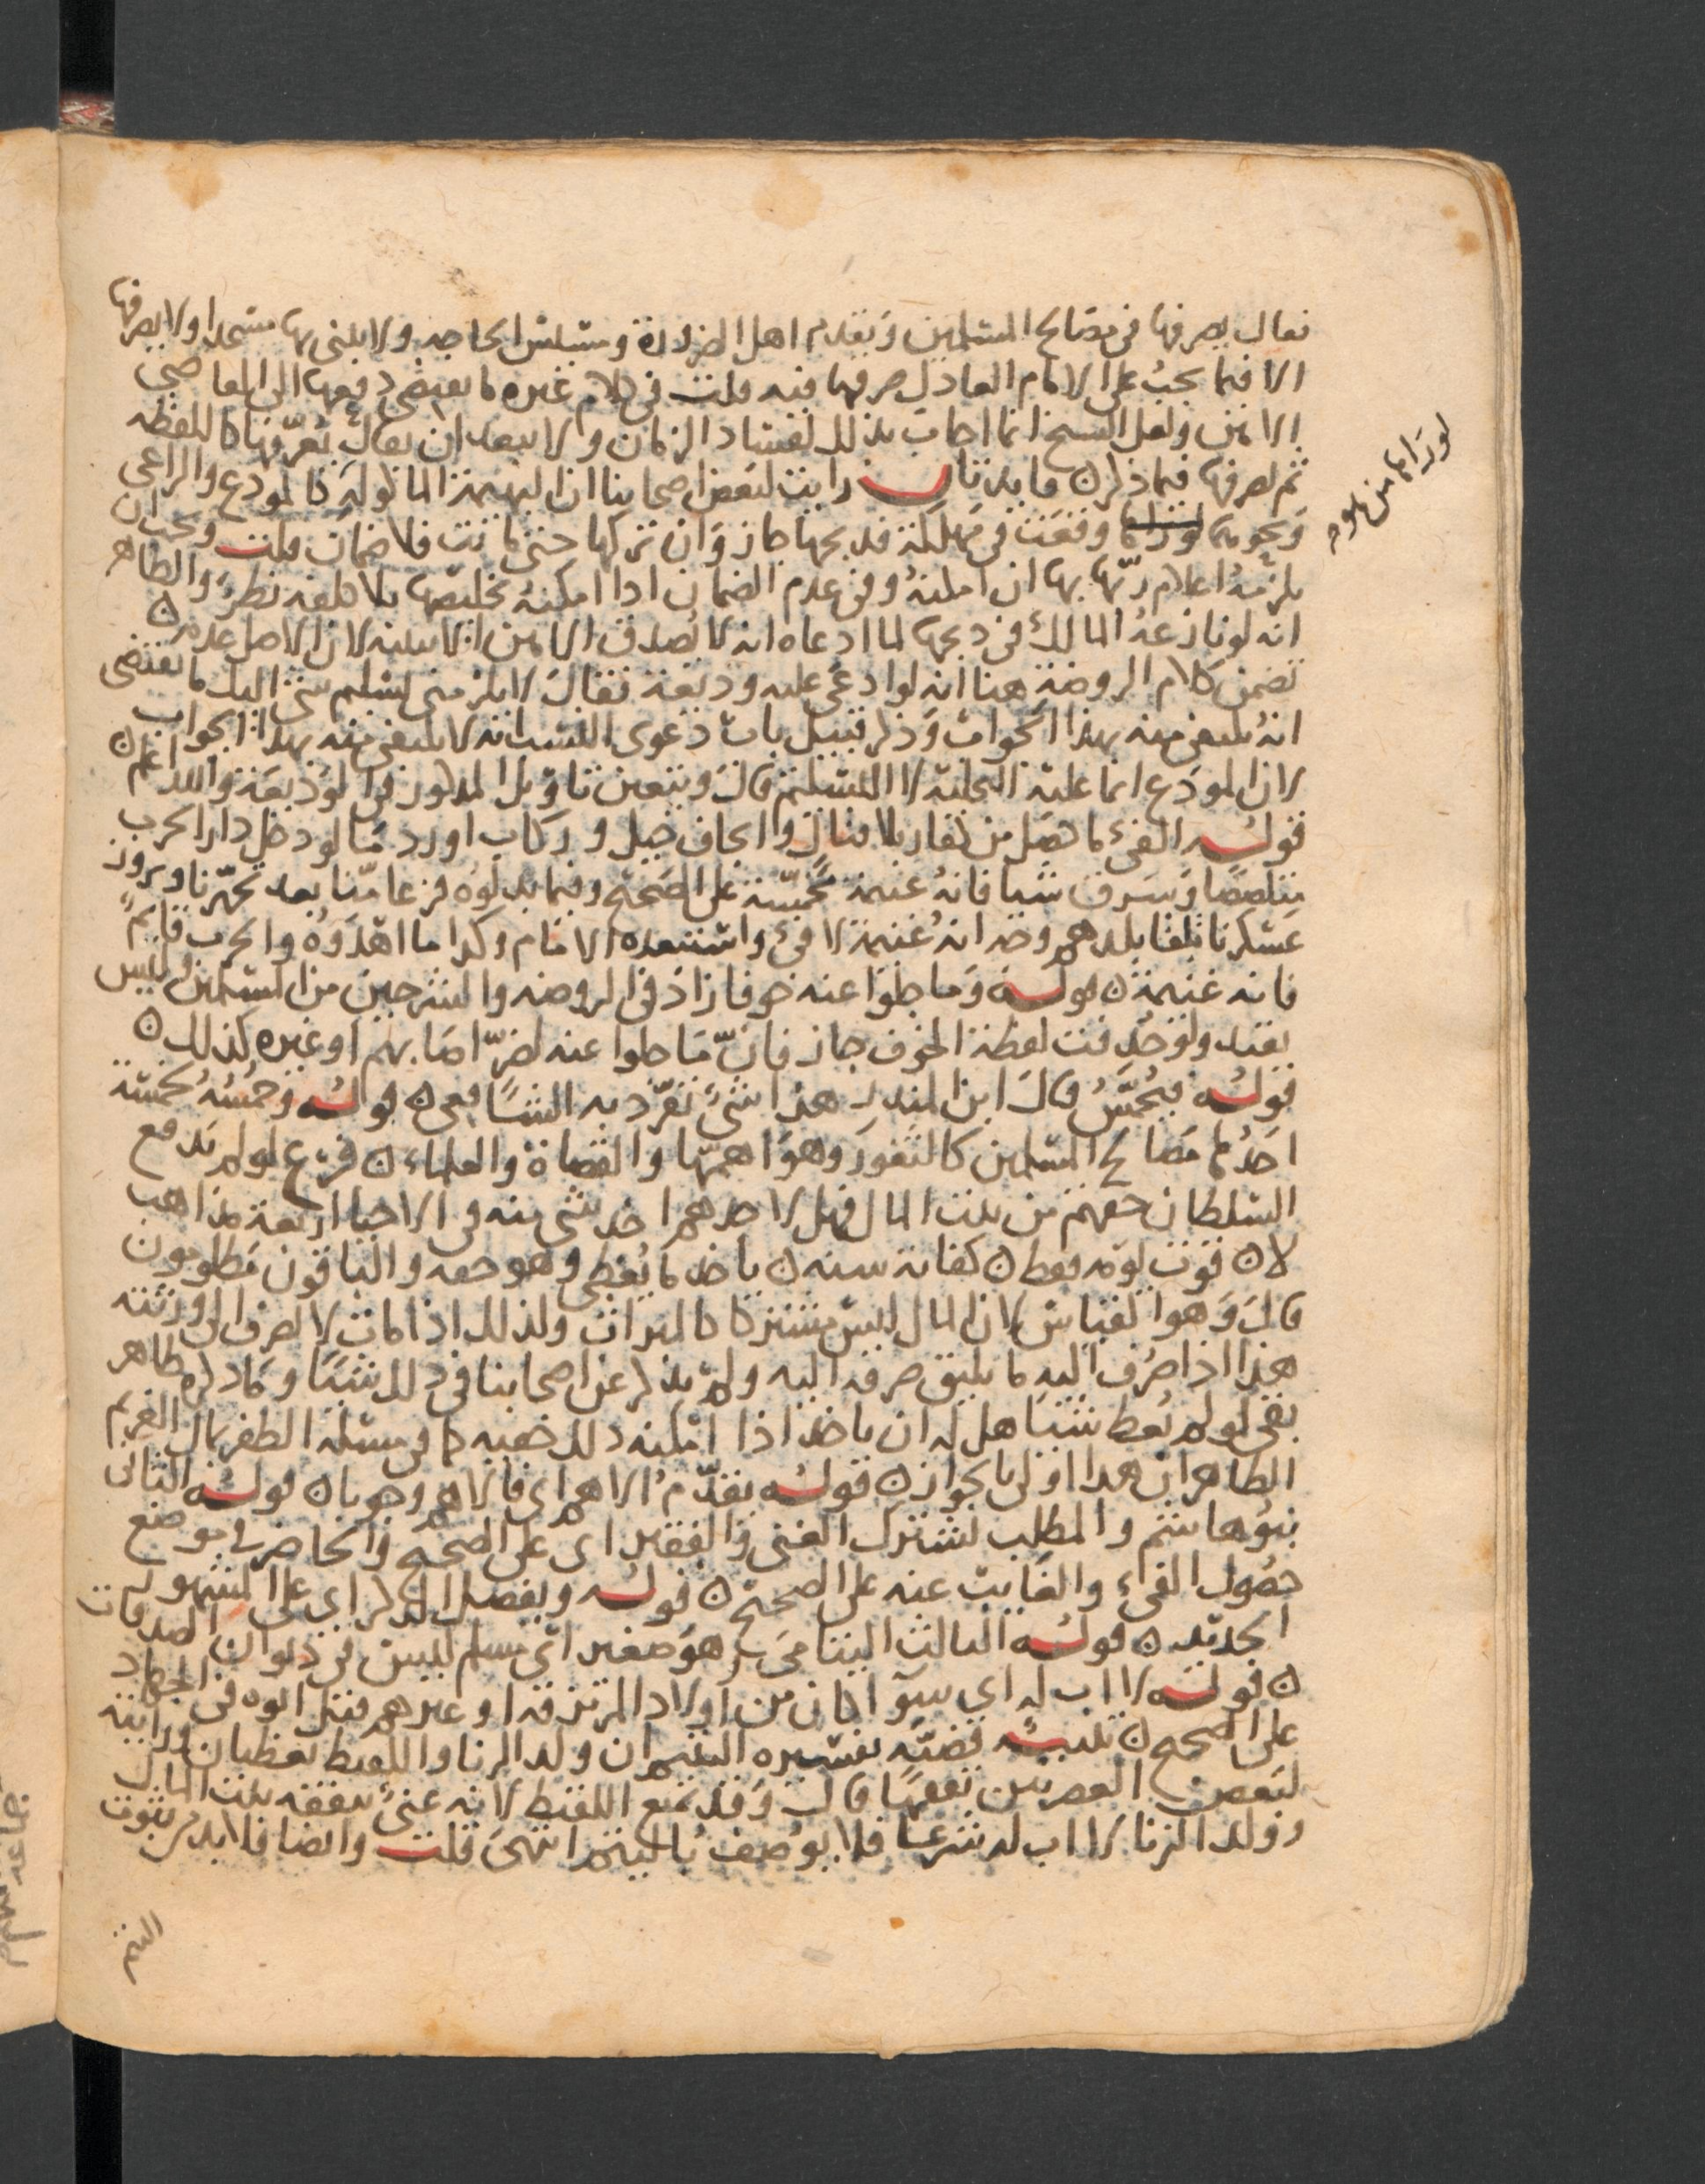 فقال يصرفها في مصالح المسلمين ويقدم اهل الضرورة ومسيس الحاجه ولا يبني بها مسجدا ولا يصرفها
الا فيما يجب على الامام العادل صرفها فيه قلت في كلام غيره ما يقتضي دفعها الى القاضي
الامين ولعل الشيخ انما اجاب بذلك لفساد الزمان ولا يبعد ان يقال يعرفها كاللقطه
ثم يصرفها فيما ذكره فايدتان رايت لبعض اصحابنا ان البهيمة الماكوله كالمودع والراعي
ونحوهما لو راها وقعت في مهلكة فذبحها جاز وان تركها حتى ماتت فلا ضمان قلت ويجب ان
يلزمه اعلام ربها بها ان امكنه وفي عدم الضمان اذا امكنه تخليصها بلا كلفه نظر والظاهر
انه لو نازعه المالك في ذبحها لما ادعاه انه لا يصدق الامين الا ببينه لان الاصل عدمه ن
تضمن كلام الروضة هنا انه لو ادعى عليه وديعة فقال لا يلزمني تسليم شي اليك ما يقتضي
انه يكتفى منه بهذا الجواب وذكر قبيل باب دعوى النسب انه لا يكتفى منه بهذا الجواب
لان المودع انما عليه التخلية لا التسليم قال ويتعين تاويل المذكور في الوديعة والله اعلم ن
قوله الفئ ما حصل من كفار بلا قتال وايجاف خيل وركاب اورد ما لو دخل دار الحرب
متلصصا وسرق شيا فانه غنيمة مخمسة على الصحيح وفيما بذلوه فزعا منا بعد تجهزنا وبروز
عسكرنا تلقا بلدهم وجه انه غنيمة لا فئ واستبعده الامام وكذا ما اهدوه والحرب قايم
فانه غنيمة ن قوله وما جلوا عنه خوفا زاد في الروضه والشرحين من المسلمين وليس
بقيد ولو حذفت لفظة الخوف جاز فان ما جلوا عنه لضر اصابهم او غيره كذلك ن
قوله فيخمس قال ابن المنذر هذا شئ تفرد به الشافعي ن قوله وخمسه لخمسة
احدها مصالح المسلمين كالثغور وهو اهمها والقضاة والعلماء ن فرع لو لم يدفع
السلطان حقهم من بيت المال فهل لاحدهم اخذ شي منه في الاحيا اربعة مذاهب
لا ن قوت يومه فقط ن كفاية سنه ن ياخذ ما يعطى وهو حقه والباقون مظلومون
قال وهو القياس لان المال ليس مشتركا كالميراث ولذلك اذا مات لا يصرف الى ورثته
هذا اذا صرف اليه ما يليق صرفه اليه ولم يذكر عن اصحابنا في ذلك شيا وما ذكره ظاهر
بقي لو لم يعط شيا هل له ان ياخذ اذا امكنه ذلك خفيه كما في مسله الظفر بمال الغريم
الظاهر ان هذا اولى بالجواز ن قوله يقدم الاهم اي فالاهم وجوبا ن قوله الثاني
بنو هاشم والمطلب يشترك الغني والفقير اي على الصحيح والحاضر في موضع
حصول الفيء والغايب عنه على الصحيح ن قوله ويفضل الذكر اي على المشهور
الجديد ن قوله الثالث اليتامى هو صغير اي مسلم ليس في ديوان الصدقات
ن قوله لا اب له اي سوا كان من اولاد المرتزقة او غيرهم قتل ابوه في الجهاد
على الصحيح ن تنبيه قضية تفسيره اليتيم ان ولد الزنا واللقيط يعطيان ورايته
لبعض العصريين تفقها قال وقد يمنع اللقيط لانه غني بنفقه بيت المال
وولد الزنا لا اب له شرعا فلا يوصف باليتم انتهى قلت وايضا فلا بد من ثبوت
اليتم
لو راها من علوم